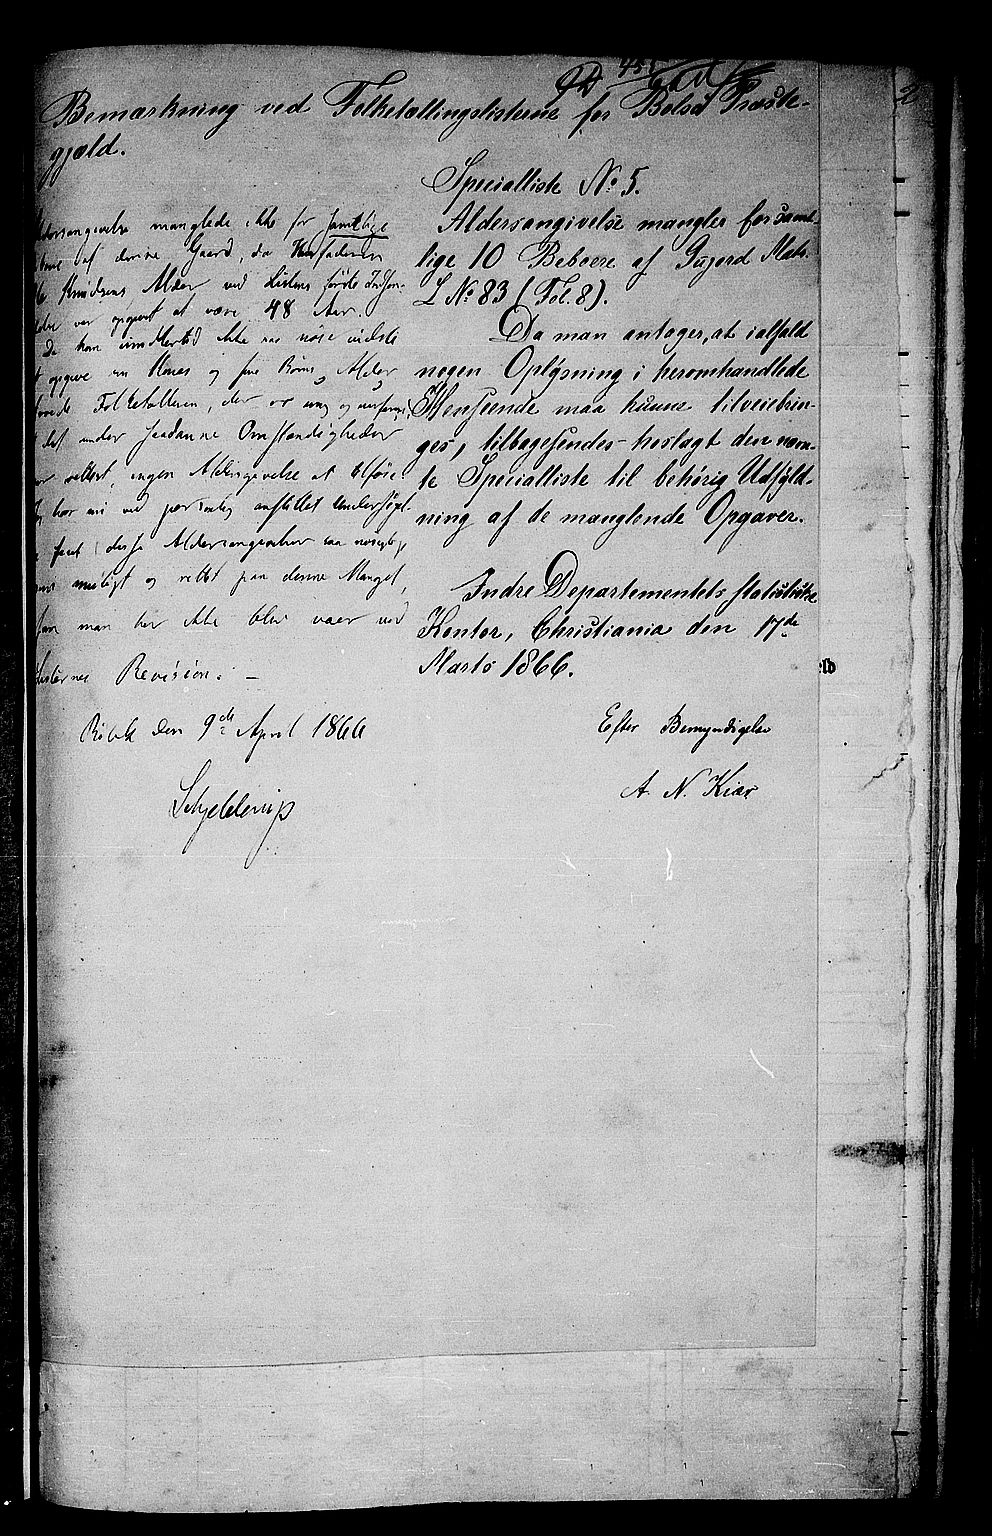 Bemærkning ved Folketællingslisterne for Bolsø Præste-
gjæld.
Specialliste No 5.
Aldersangivelse mangler for samt-
lige 10 Beboere af Gujord Matr.
L No 83 (Fol. 8).
Da man antager, at ialfald
nogen Oplysning i heromhandlede
Henseende maa kunne tilveiebrin-
ges, tilbagesendes hoslagt den nævn-
te Specialliste til behørig Udfyld-
ning af de manglende Opgaver.
Indre Departementets statistiske
Kontor, Christiania den 17de
Marts 1866.
Efter Bemyndigelse
A. N. Kiær
manglede ikke for samtlige
af denne Gaard, da Husfaderen
Knudsens Alder ved Listens første
var opgivet at være 48 Aar.
Da han imidlertid ikke
opgive sin Kones og sine Børns Alder
Folketælleren, der er ung og
det under saadanne Omstændigheder
rettest, ingen at tilføie.
har nu ved personlig anstillet Undersøgel-
faaet disse
muligt og rettet paa denne Mangel,
man her ikke blev vaer ved
Listernes Revision. —
den 9de April 1866
Schjelderup